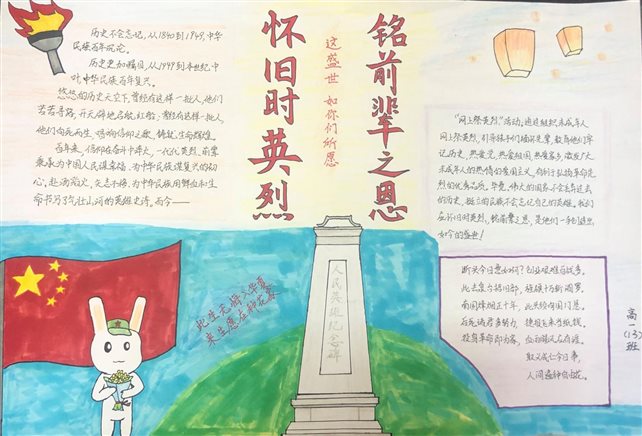 铭前辈之恩
怀旧时英烈
这盛世 如你们所愿
历史不会忘记，从1840到1949，中华
民族百年沉沦。
历史更加瞩目，从1949到本世纪中
叶中华民族百年复兴。
悠悠的历史天空下，曾经有这样一批人，他们
苦苦寻路，开天辟地启航红船；
他们向死而生，
百年来，信仰在奋斗中淬火，一代代英烈、前辈
秉承为中国人民谋幸福、为中华民族谋复兴的初
心，赴汤蹈火、矢志不移，为中华民族用鲜血和生
命书写了气壮山河的英雄史诗。而今——
“网上祭英烈”活动，通过组织未成年人
网上祭英烈，引导孩子们缅怀先辈，教育他们牢
记历史、热爱党、热爱祖国、热爱家乡，激发广大
未成年人的热情的爱国主义，有利于弘扬革命先
烈的优秀品质。毕竟，伟大的国家不会丢弃过去
的历史，挺立的民族不会忘记自己的英雄。我们
在怀旧时英烈、铭前辈之恩，是他们一手创造出
如今的盛世！
此生无悔入华夏
来生愿在种花家
人民英雄纪念碑
断头今日意如何？创业艰难百战多。
此去泉台招旧部，旌旗十万斩阎罗。
南国烽烟正十年，此头须向国门悬。
后死诸君多努力，捷报飞来当纸钱。
投身革命即为家，血雨腥风应有涯。
取义成仁今日事，
人间遍种自由花。
高一(13)班